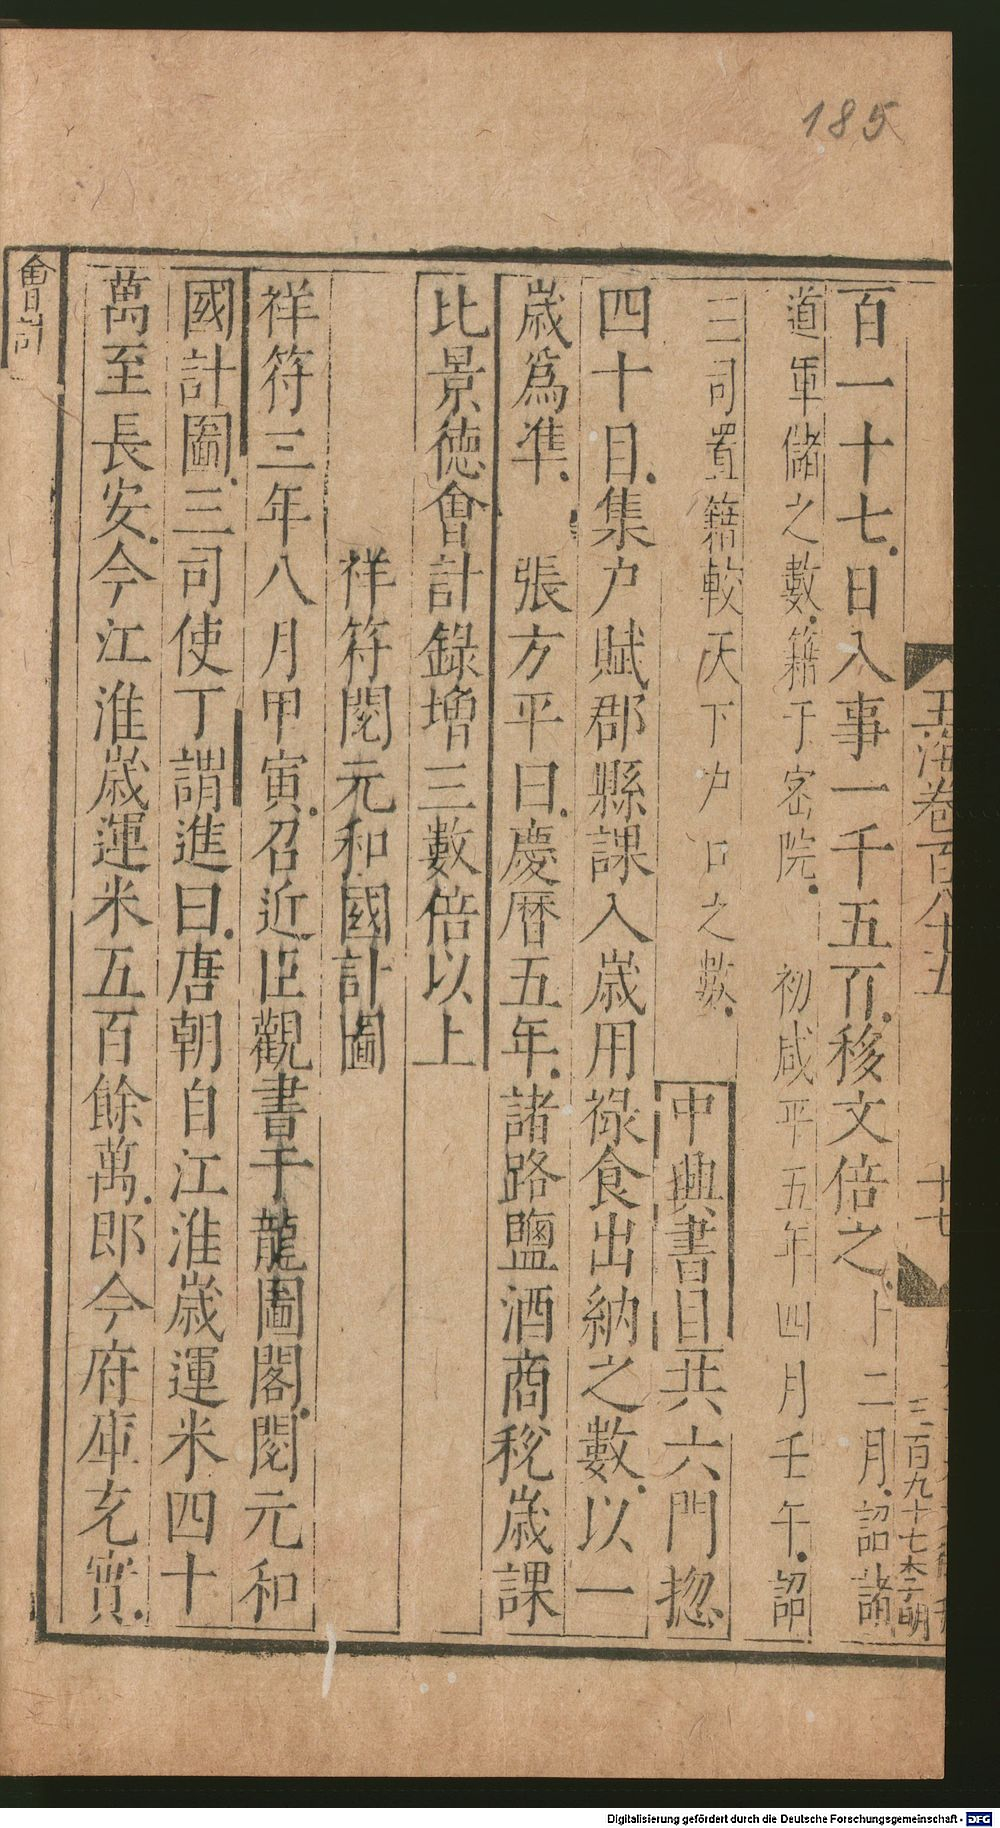 185
玉海卷百八十五
十七
三百九十七李子明
百一十七日入事一千五百移文倍之十二月詔諸
道軍儲之數籍于密院初咸平五年四月壬午詔
三司置籍較天下户口之數中興書目共六門揔
四十目集户賦郡縣課入歲用祿食出納之數以一
歲爲準張方平曰慶曆五年諸路鹽酒商稅歲課
比景德會計錄增三數倍以上
祥符閱元和國計圖
祥符三年八月甲寅召近臣觀書于龍圖閣閱元和
國計圖三司使丁謂進曰唐朝自江淮歲運米四十
萬至長安今江淮歲運米五百餘萬郎今府庫充實
會計
Digitalisierung gefördert durch die Deutsche Forschungsgemeinschaft - DFG